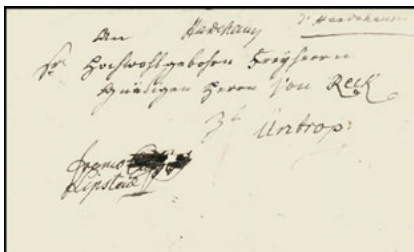 An Hardehaus d'Hardehausen
Sr. Hochwohlgebohrn Freyherrn
Gnädigen Herrn Von Reck
zu Üntrop:
franco
Lipstadt